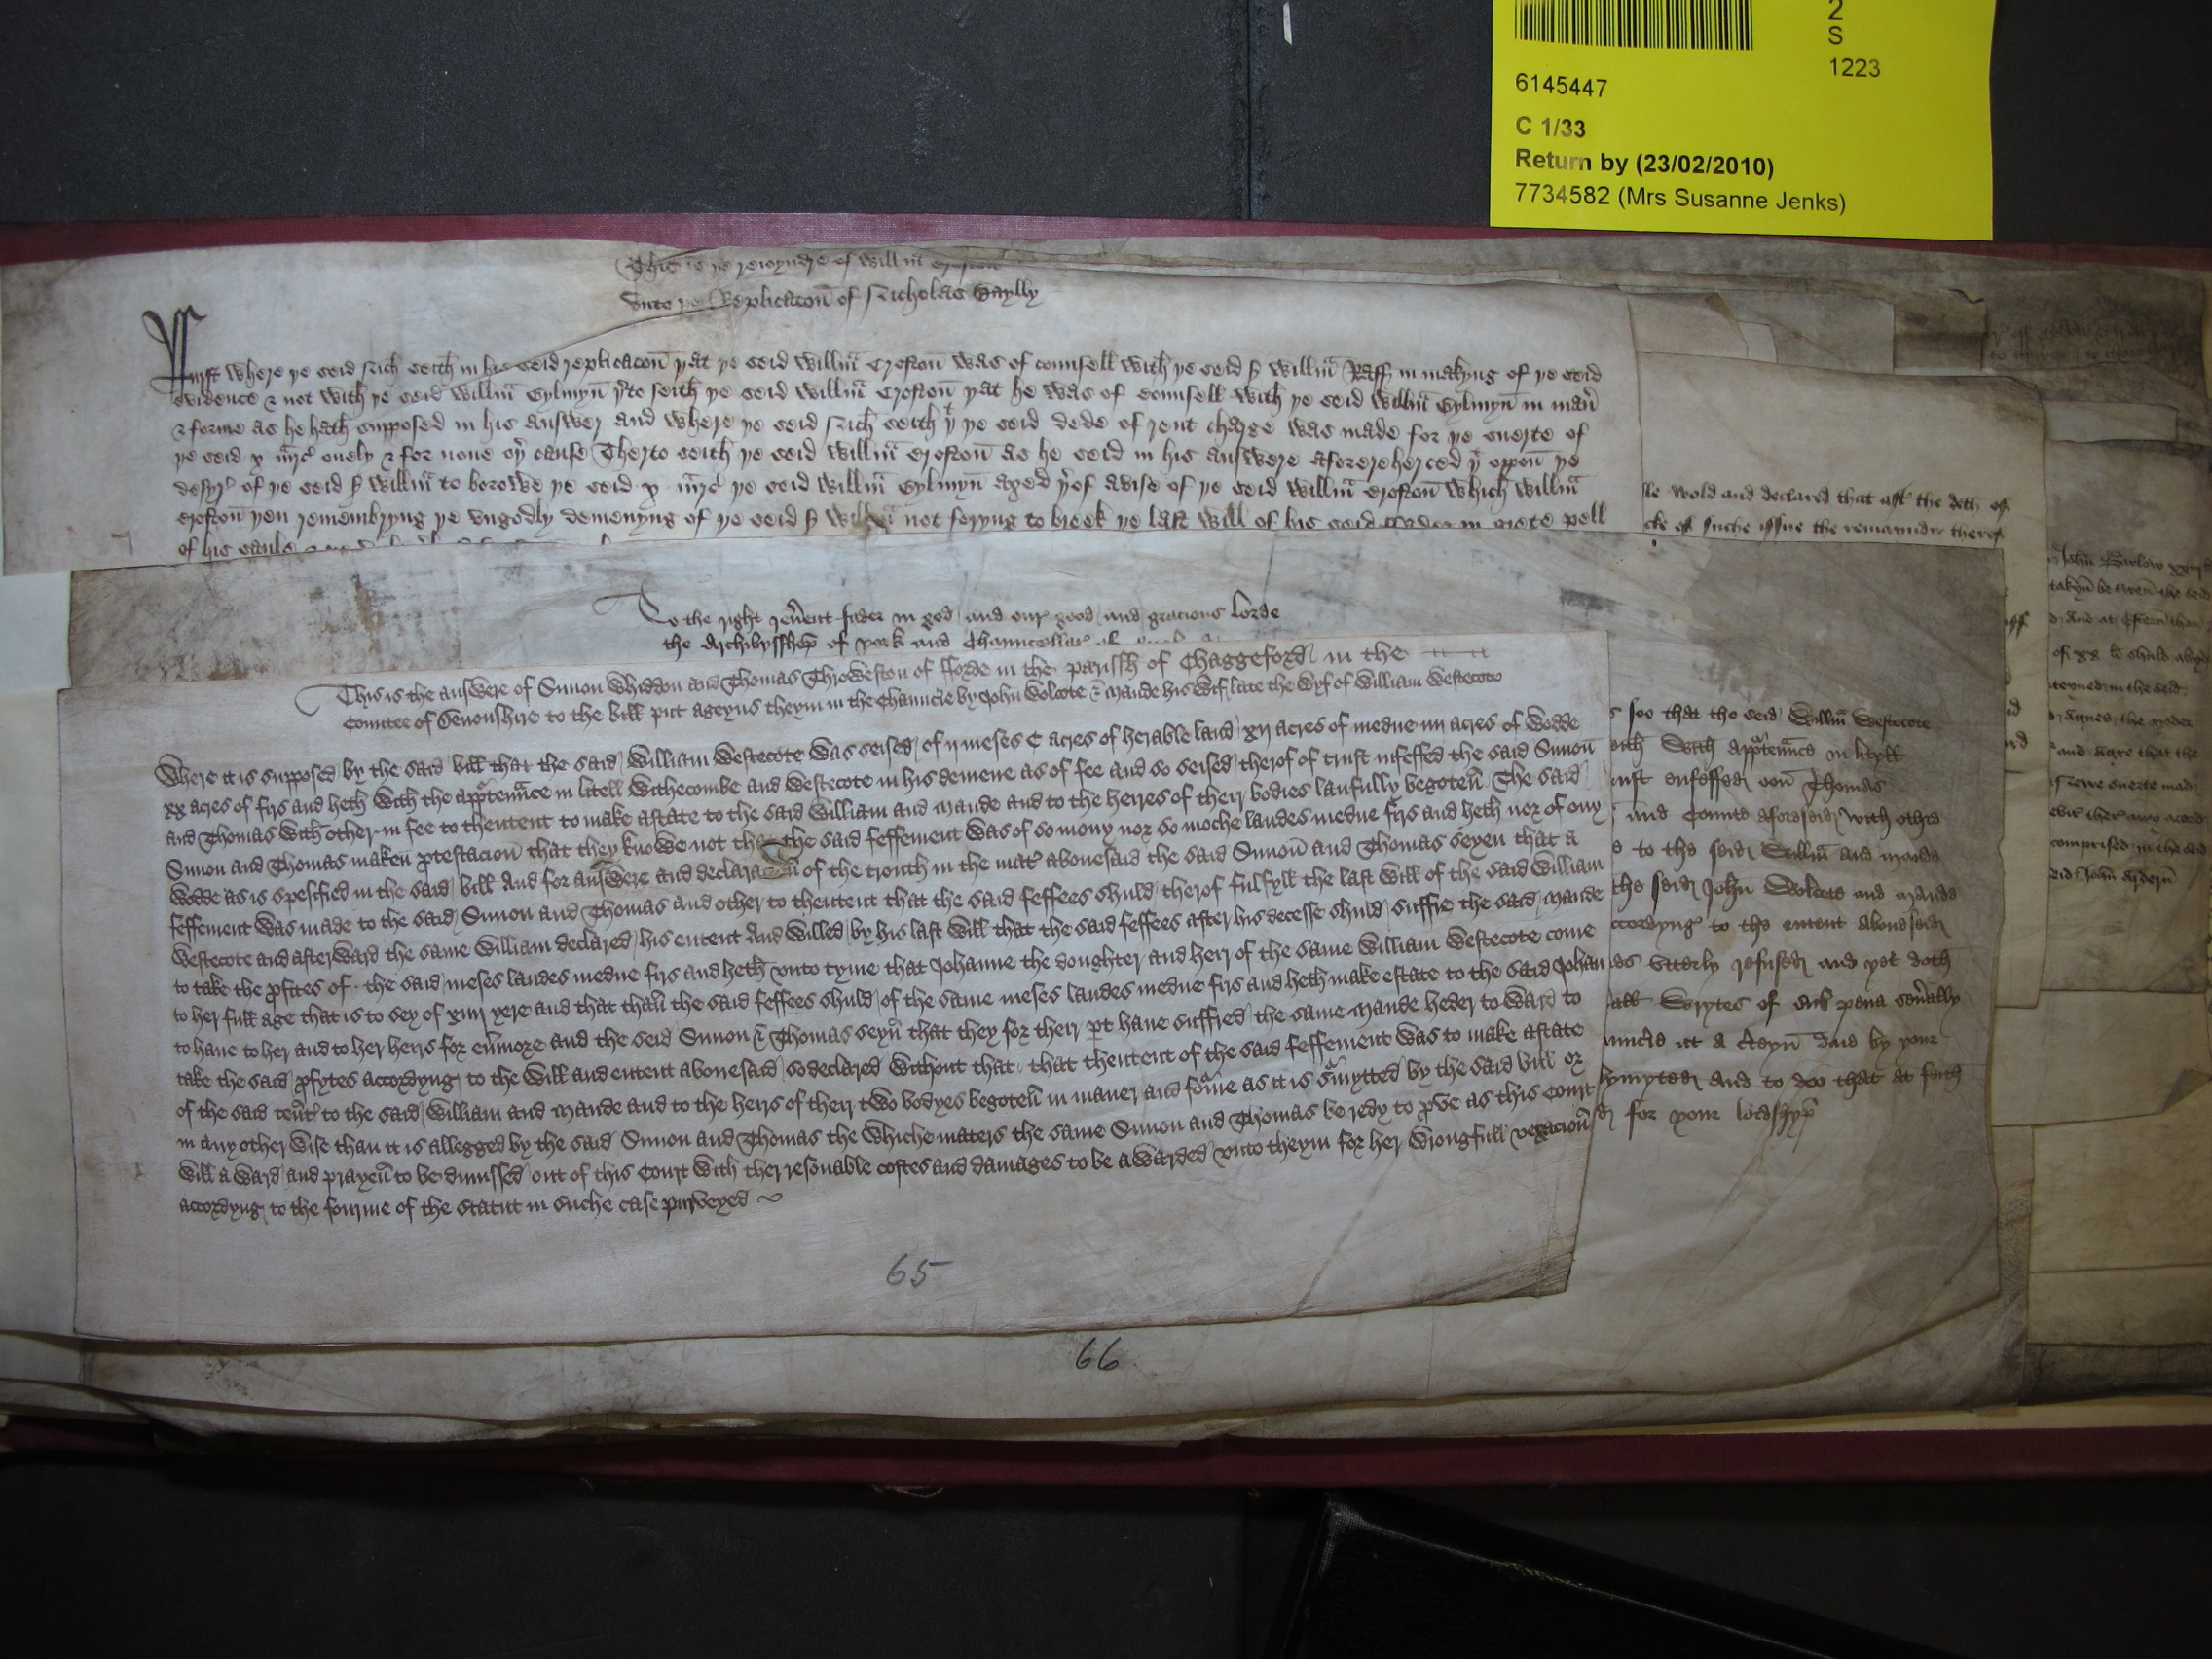 2
S
1223
6145447
C 1/33
Return by (23/02/2010)
7734582 (Mrs Susanne Jenks)
This is ye reioyndre of Willm̄ Croftoñ
vnto ye Replicacoñ of Nicholas Bayly
Fyrst where ye seid Nich seith in his seid replicacoñ yat ye seid Willm̄ Croftoñ was of counsell with ye seid S Willm̄ in makyng of ye seid
evidence & not with ye seid Willm̄ Gylmyn̄ yto seith ye seid Willm̄ Croftoñ yat he was of counsell with ye seid Willm̄ Gylmyn̄ in man̄
& forme as he hath supposed in his answer and where ye seid Nich seith yt ye seid dede of rent charge was made for ye suerte of
ye seid x mrc̄ onely & for none oy cause Therto seith ye seid Willm̄ Croftoñ as he seid in his answere aforereherced yt oppon ye
desyr of ye seid S Willm̄ to borowe ye seid x mrc̄ ye seid Willm̄ Gylmyn̄ axed yof avise of ye seid Willm̄ Croftoñ which Willm̄
Croftoñ yen remembryng ye vngodly demenyng of ye seid S Willm̄ not feryng to breek ye last will of his seid in grete pell
of his saule
le wold and declared that aft the deth of
cke of suche issue the remaynder therof
To the right reũent fader in god and our good and gracious lorde
the Archibysshop of york and Chauncellar of
This is the answere of Simon Whiddon and Thomas Throweston of fforde in the parissh of Chaggeford in the
Countee of Devonshire to the bill put ageyns theym in the Chauncie by John Wolcote & Maude his wif late the wyf of William Westecote
Where it is supposed by the said bill that the said William Westecote was seised of ij meses C acres of herable land xij acres of medue iiij acres of Wodde
xx acres of firs and heth with the apptennce in litell Withecombe and Westecote in his demene as of fee and so seised therof of trust infeffed the said Simon
and Thomas with other in fee to thentent to make astate to the said William and Maude and to the heires of their bodies laufully begoteñ The said
Simon and Thomas maken ptestacioñ that they knowe not that the said feffement was of so mony nor so moche landes medue firs and heth nor of ony
Wodde as is spesified in the said bill And for answere and declaracioñ of the trouth in the mat abouesaid the said Simoñ and Thomas seyen that a
feffement was made to the said Simon and Thomas and other to thentent that the said feffees shuld therof fulfyll the last will of the said William
Westecote and afterward the same William declared his entent And willed by his last will that the said feffees after his decesse shuld suffre the said Maude
to take the pfites of the said meses landes medue firs and heth vnto tyme that Johanne the doughter and heir of the same William Westecote come
to her full age that is to sey of xiiij yere and that thañ the said feffees shuld of the same meses landes medue firs and heth make estate to the said Johan
to haue to her and to her heirs for eũmore and the seid Simon & Thomas seyñ that they for their pt haue suffred the same Maude heder to ward to
take the said pfytes accordyng to the will and entent abouesaid so declared Without that that thentent of the said feffement was to make astate
of the said teñt to the said William and Maude and to the heirs of their two bodyes begoteñ in maner and fo'me as it is s'mytted by the said bill or
in any other wise than it is allegged by the said Simon and Thomas the whiche maters the same Simon and Thomas be redy to pve as this Court
will award and prayeñ to be dimissed out of this Court with ther resonable costes and damages to be awarded vnto theym for her wrongfull vexacioñ
accordyng to the fourme of the statut in suche case purveyed
65
66
soo that the seid Willm̄ Westecote
with apptenñce in lityll
enfeffed oon Thomas
and Counte aforeseid with othir
to the seid Willm̄ and Maude
the seid John Wolcote and Maude
ccordyng to the entent aboueseid
vtterly refused and yet doth
all Wrytes of sub pena seũally
at a day by your
lymyted And to doo that at feith
for your lordshypp
John Barlow
takyñ be twen the seid
And at
of xx li shuld
in the seid
Agnes the moder
and where that the
suerte made
ther any acord
comprised in the seid
seid John Ardern